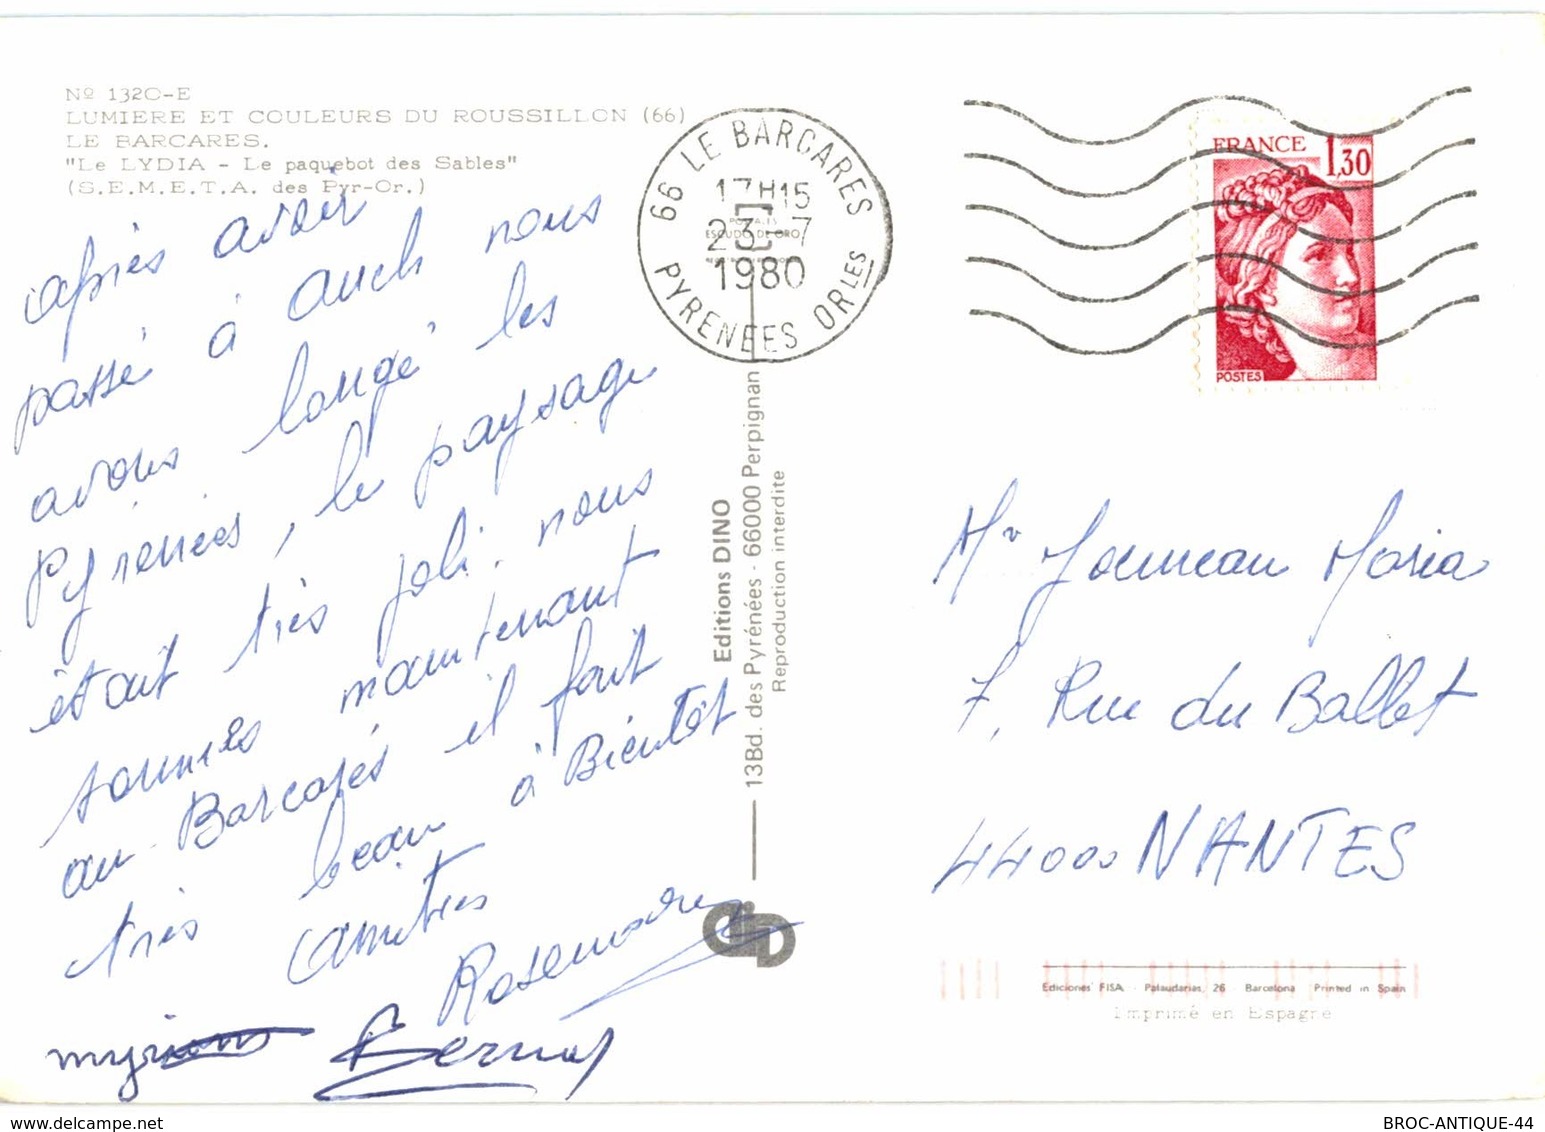 Nº 1320-E
LUMIERE ET COULEURS DU ROUSSILLON (66)
LE BARCARES.
"Le LYDIA - Le paquebot des Sables"
(S.E.M.E.T.A. des Pyr-Or.)
après avoir
passé à auch nous
avons longé les
Pyrénées, le paysage
était très joli. nous
sommes maintenant
au Barcarès il fait
très beau à Bientôt
amitiés
Rosemarie
Bernard
66 LE BARCARES
17H15
23-7
1980
PYRENEES ORLES
POSTALES
ESCUDO DE ORO
Editions DINO
13Bd. des Pyrénées - 66000 Perpignan
Reproduction interdite
FRANCE 1,30
POSTES
Mr Maria
7, Rue du Ballet
44000 NANTES
Ediciones FISA - Palaudarias, 26 - Barcelona Printed in Spain
Imprimé en Espagne
delcampe.net
BROC-ANTIQUE-44